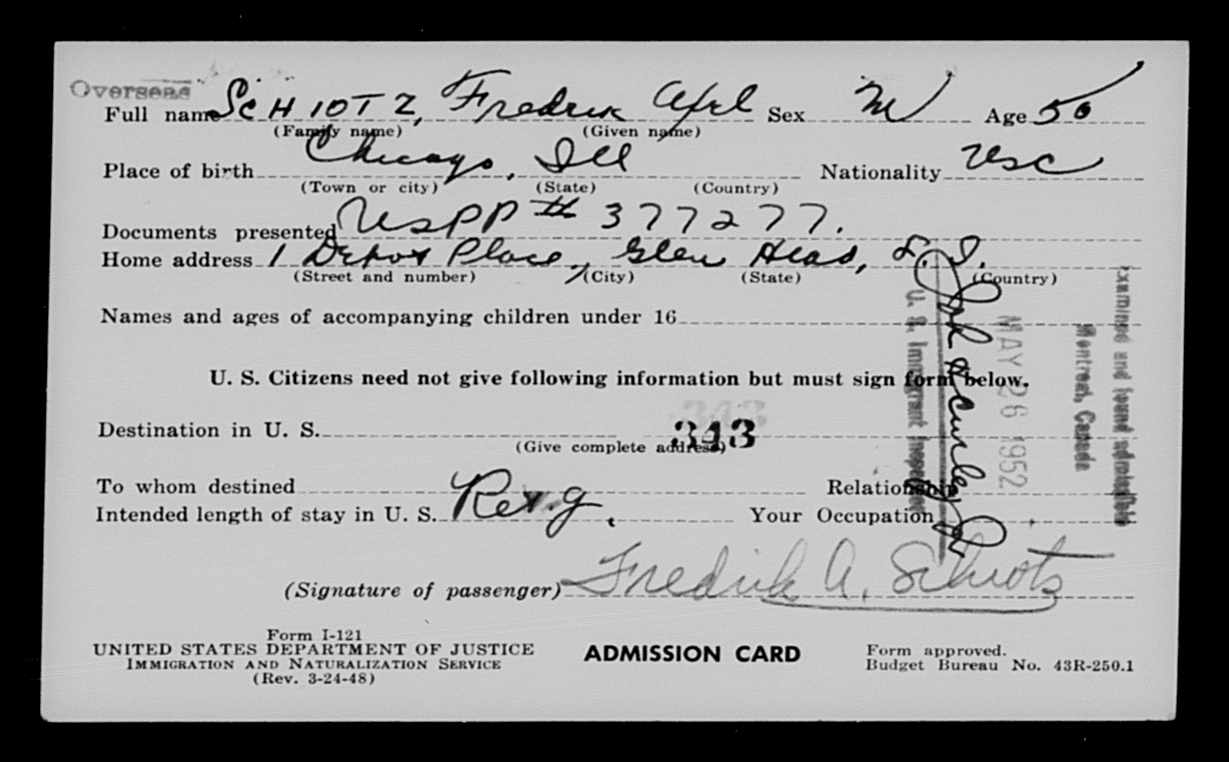 Overseas
Full name SCHIOTZ, Fredrik Axel Sex M Age 50
(Family name) (Given name)
Place of birth Chicago, Ill Nationality USC
(Town or city) (State) (Country)
Documents presented USPP # 377277.
Home address 1 Depot Place, Glen Head, L. I.
(Street and number) (City) (State) (Country)
Names and ages of accompanying children under 16
U. S. Citizens need not give following information but must sign form below.
Destination in U. S.
343
343
(Give complete address)
To whom destined Relationship
Intended length of stay in U. S. Your Occupation
(Signature of passenger) Fredrik A. Schiotz
Examined and found admissible
Montreal, Canada
MAY 26 1952
U. S. Immigrant Inspector
Form I-121
UNITED STATES DEPARTMENT OF JUSTICE
IMMIGRATION AND NATURALIZATION SERVICE
(Rev. 3-24-48)
ADMISSION CARD
Form approved.
Budget Bureau No. 43R-250.1